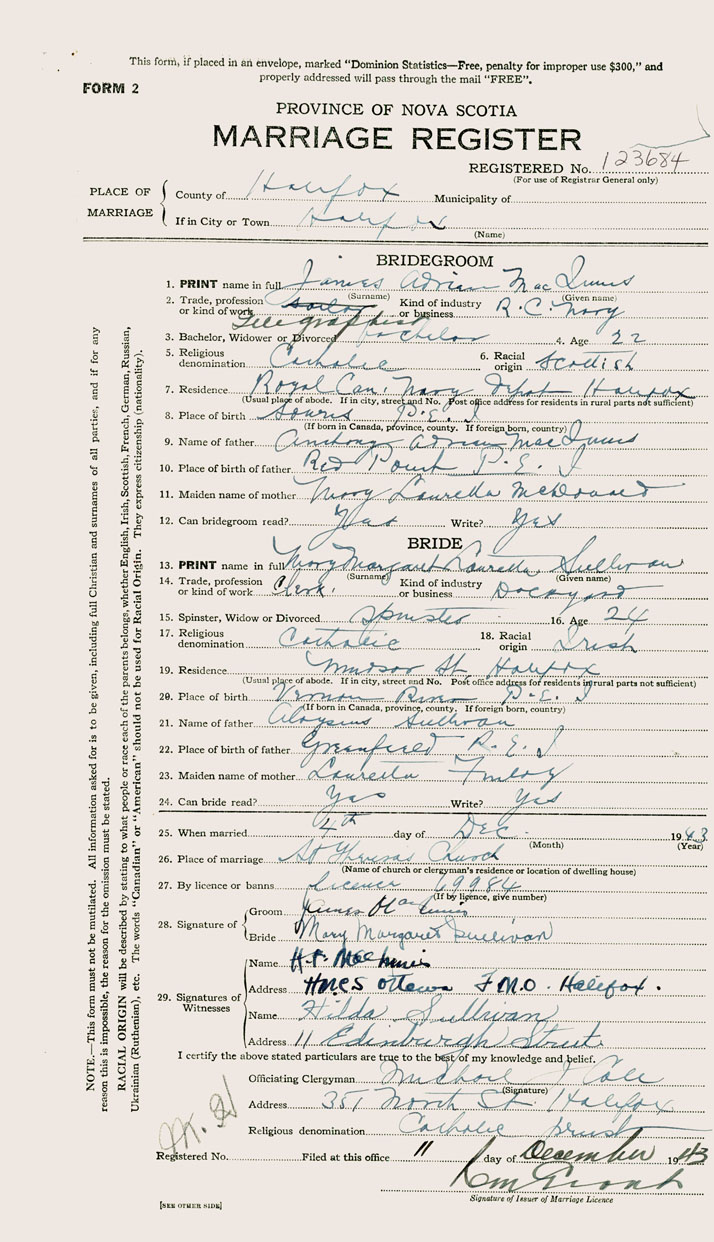 This form, if placed in an envelope, marked "Dominion Statistics—Free, penalty for improper use $300," and
properly addressed will pass through the mail "FREE".
FORM 2
PROVINCE OF NOVA SCOTIA
MARRIAGE REGISTER
REGISTERED No. 123684
(For use of Registrar General only)
PLACE OF MARRIAGE
County of Halifax Municipality of
If in City or Town Halifax
(Name)
BRIDEGROOM
1. PRINT name in full James Adrian MacInnis
(Surname) (Given name)
2. Trade, profession or kind of work Telegraphist Kind of industry or business R.C. Navy
3. Bachelor, Widower or Divorced bachelor 4. Age 22
5. Religious denomination Catholic 6. Racial origin Scottish
7. Residence Royal Can. Navy Depot Halifax
(Usual place of abode. If in city, street and No. Post office address for residents in rural parts not sufficient)
8. Place of birth Souris P.E.I
(If born in Canada, province, county. If foreign born, country)
9. Name of father Anthony Adrian MacInnis
10. Place of birth of father Red Point P.E.I
11. Maiden name of mother Mary Lauretta McDonald
12. Can bridegroom read? Yes Write? Yes
BRIDE
13. PRINT name in full Mary Margaret Lauretta Sullivan
(Surname) (Given name)
14. Trade, profession or kind of work Clerk. Kind of industry or business Dockyard
15. Spinster, Widow or Divorced Spinster 16. Age 24
17. Religious denomination Catholic 18. Racial origin Irish
19. Residence Windsor St. Halifax
(Usual place of abode. If in city, street and No. Post office address for residents in rural parts not sufficient)
20. Place of birth Vernon River P.E.I
(If born in Canada, province, county. If foreign born, country)
21. Name of father Aloysius Sullivan
22. Place of birth of father Greenfield P.E.I
23. Maiden name of mother Lauretta Finlay
24. Can bride read? Yes Write? Yes
25. When married 4th day of Dec. 1943
(Month) (Year)
26. Place of marriage St Theresa's Church
(Name of church or clergyman's residence or location of dwelling house)
27. By licence or banns Licence 69984
(If by licence, give number)
28. Signature of
Groom James MacInnis
Bride Mary Margaret Sullivan
29. Signatures of Witnesses
Name H.F. MacInnis
Address HMCS Ottawa F.M.O. Halifax.
Name Hilda Sullivan
Address 11 Edinburgh Street
I certify the above stated particulars are true to the best of my knowledge and belief.
Officiating Clergyman Michael J Cole
(Signature)
Address 351 North St. Halifax
Religious denomination Catholic priest
Registered No. Filed at this office 11 day of December 1943
Signature of Issuer of Marriage Licence
[SEE OTHER SIDE]
NOTE.—This form must not be mutilated. All information asked for is to be given, including full Christian and surnames of all parties, and if for any
reason this is impossible, the reason for the omission must be stated.
RACIAL ORIGIN will be described by stating to what people or race each of the parents belongs, whether English, Irish, Scottish, French, German, Russian,
Ukrainian (Ruthenian), etc. The words "Canadian" or "American" should not be used for Racial Origin. They express citizenship (nationality).